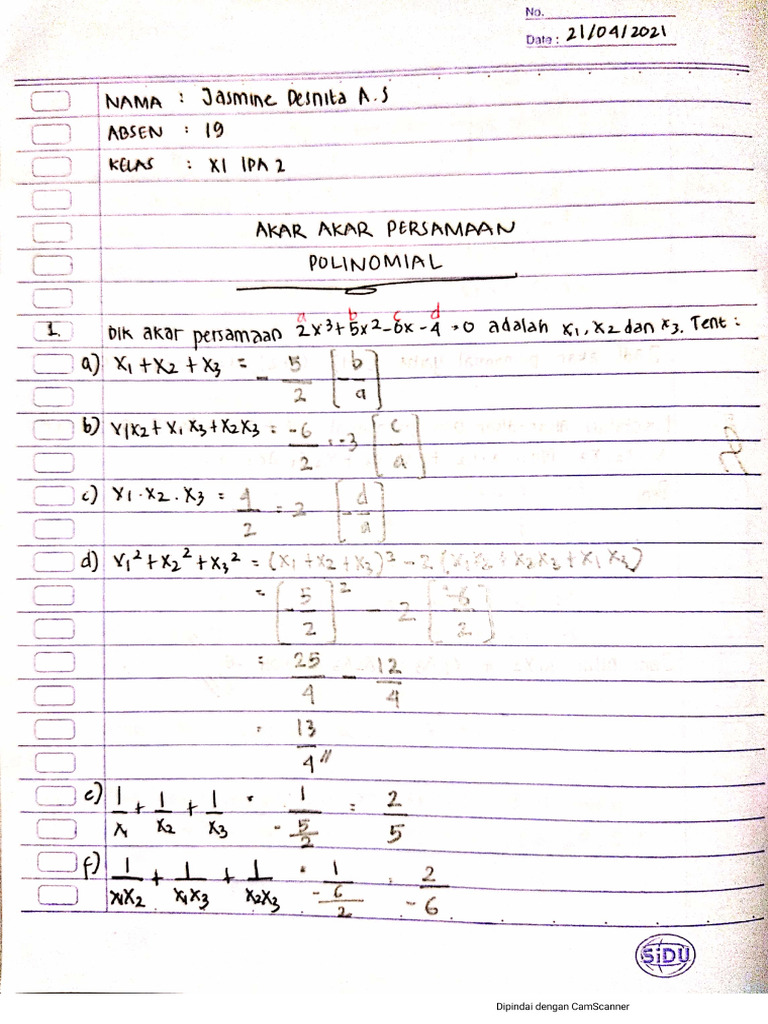 No.
Date : 21/04/2021
NAMA : Jasmine Desnita A.S
ABSEN : 19
KELAS : XI IPA 2
AKAR AKAR PERSAMAAN
POLINOMIAL
1. Dik akar persamaan 2x³ + 5x2 - 6x - 4 = 0 adalah x₁, x2 dan x3. Tent :
a b c d
a) x₁ + x2 + x3 = - 5/2 [- b/a]
b) x1x2 + x₁x3 + x2x3 = -6/2 = -3 [c/a]
c) x1 . x2 . x3 = 4/2 = 2 [- d/a]
d) x₁² + x2² + x3² = (x1 + x2 + x3)² - 2 (x1x2 + x2x3 + x1x3)
= [- 5/2]² - 2 [-6/2]
= 25/4 - 12/4
= 13/4 //
e) 1/x₁ + 1/x2 + 1/x3 = 1/(- 5/2) = 2/5
f) 1/x1x2 + 1/x1x3 + 1/x2x3 = 1/(- 6/2) = 2/-6
SiDU
Dipindai dengan CamScanner